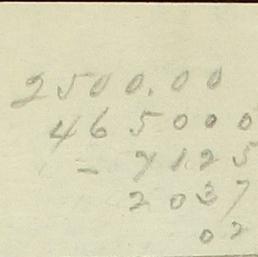 2500.00
465000
- 7125
2037
02